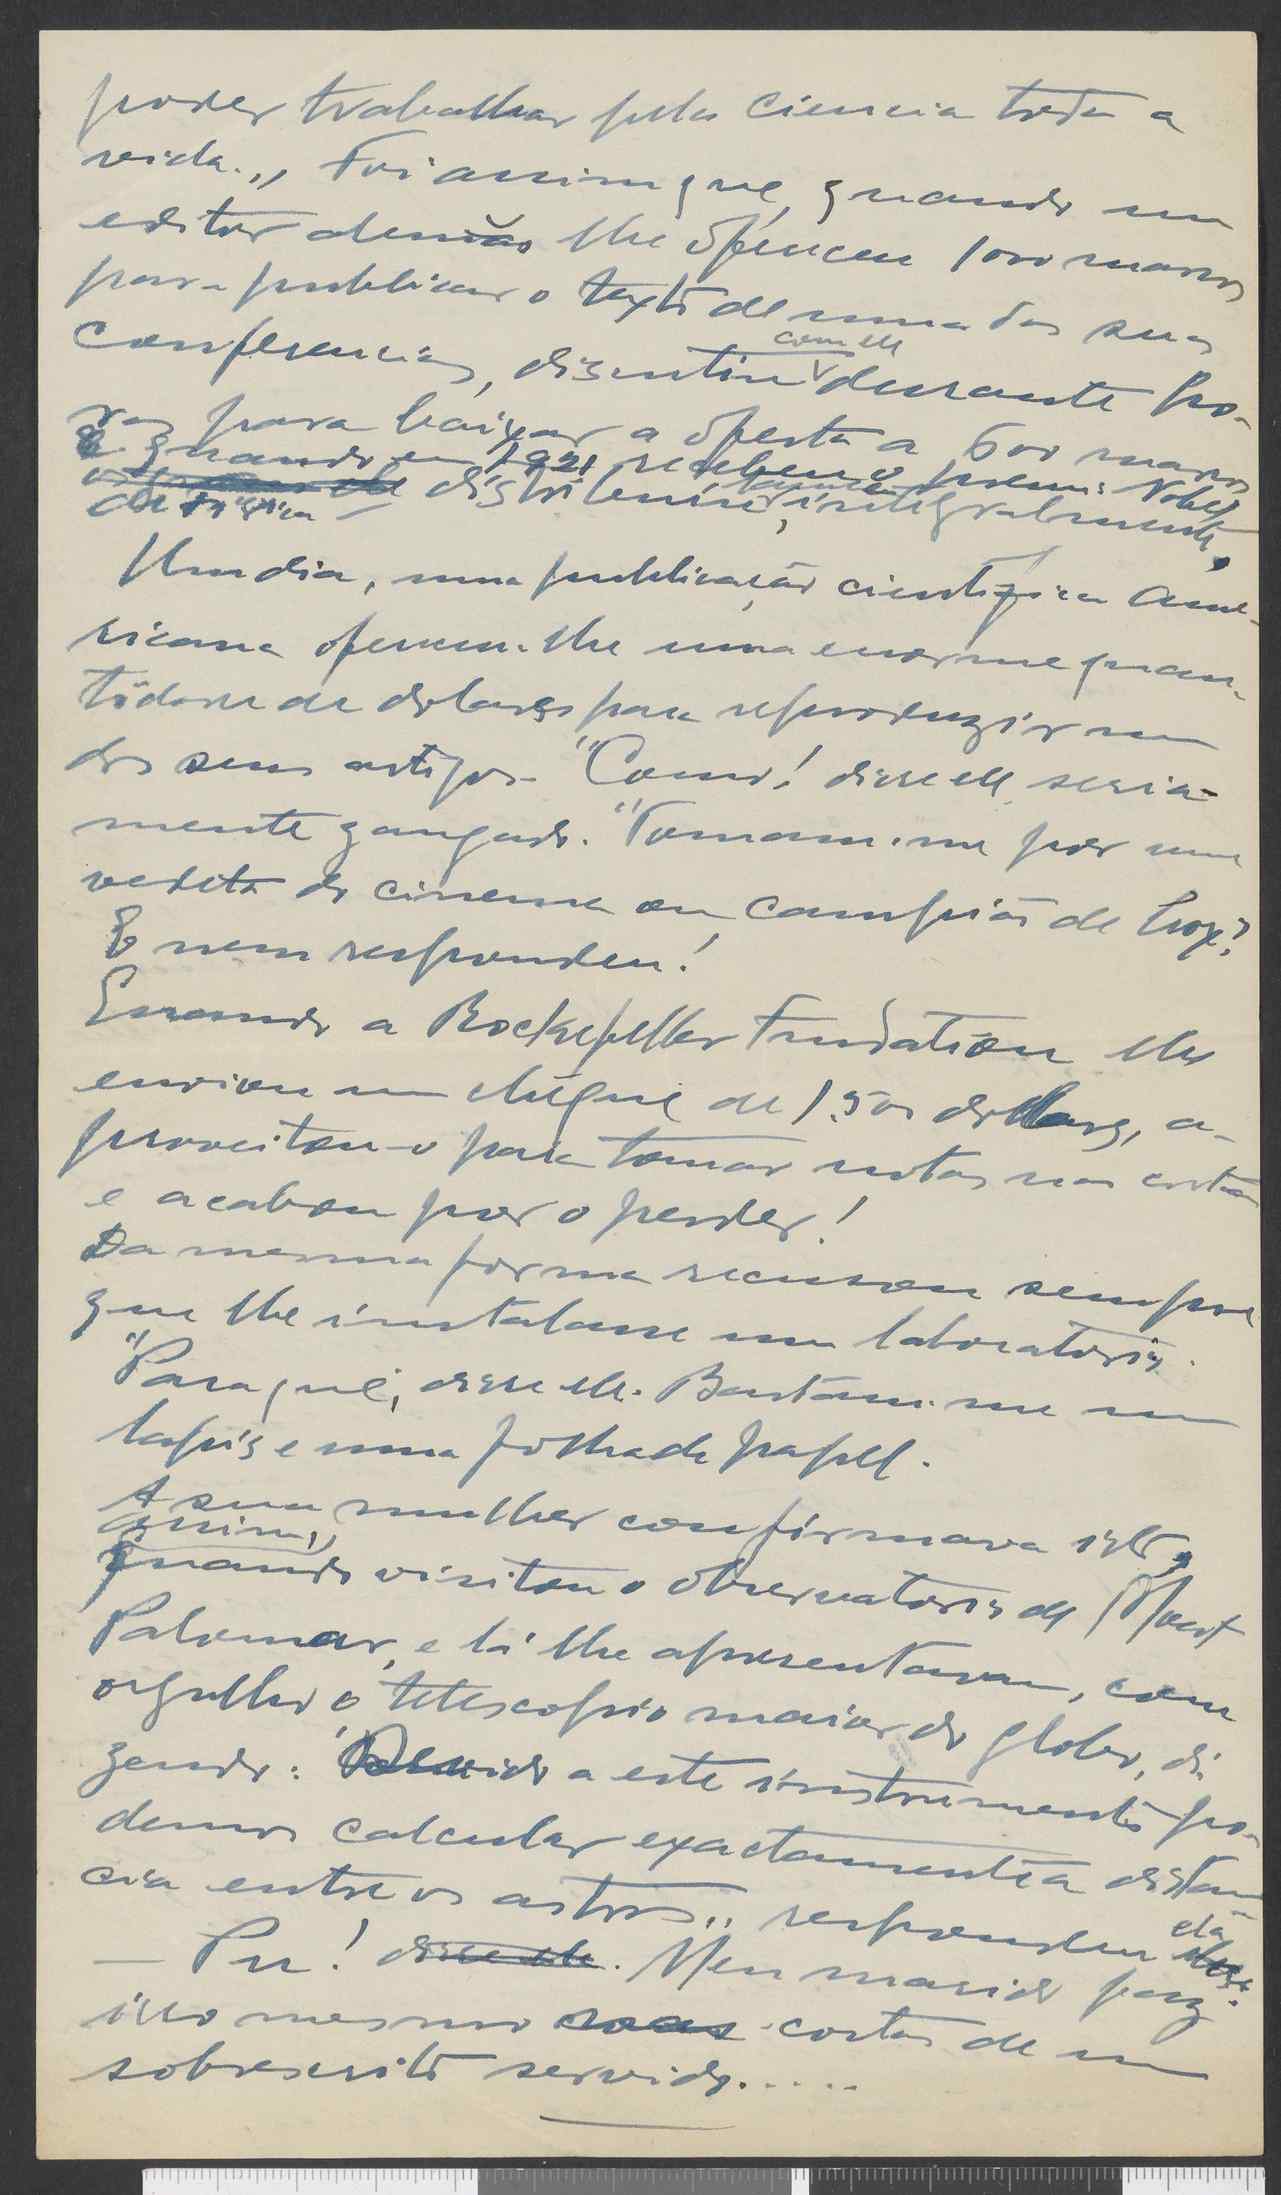 poder trabalhar pela ciencia toda a
vida.,, Foi assim que, quando um
editor alemão lhe ofereceu 1000 marcos
para publicar o texto de uma das suas
conferencias, discutiu com elle durante ho-
ras para baixar a oferta a 600 marcos
E quando em 1921 recebeu o premio Nobel
de Fisica distribuiu-o, integralmente.
Um dia, uma publicação cientifica ame-
ricana ofereceu-lhe uma enorme quan-
tidade de dolares para reproduzir um
dos seus artigos. "Como! disse elle seria-
mente zangado. "Tomam-me por uma
vedeta do cinema ou campião de box?
E nem respondeu!
Quando a Rockefeller Fundation lhe
enviou um chéque de 1.500 dollars, a-
proveitou-o para tomar notas nas costas
e acabou por o perder!
Da mesma forma recusou sempre
que lhe instalasse um laboratorio.
"Para quê, disse elle. Bastam-me um
lapis e uma folha de papel.
A sua mulher confirmava isto,
assim,
quando visitou o observatorio de Mont
Palomar, e lá lhe apresentavam, com
orgulho o telescopio maior do globo, di
zendo: "Devido a este instrumento po-
demos calcular exactamente a distan-
cia entre os astros,, respondeu ela
— Pu! disse ele. Meu marido faz
isso mesmo nas costas de um
sobrescrito servido.....